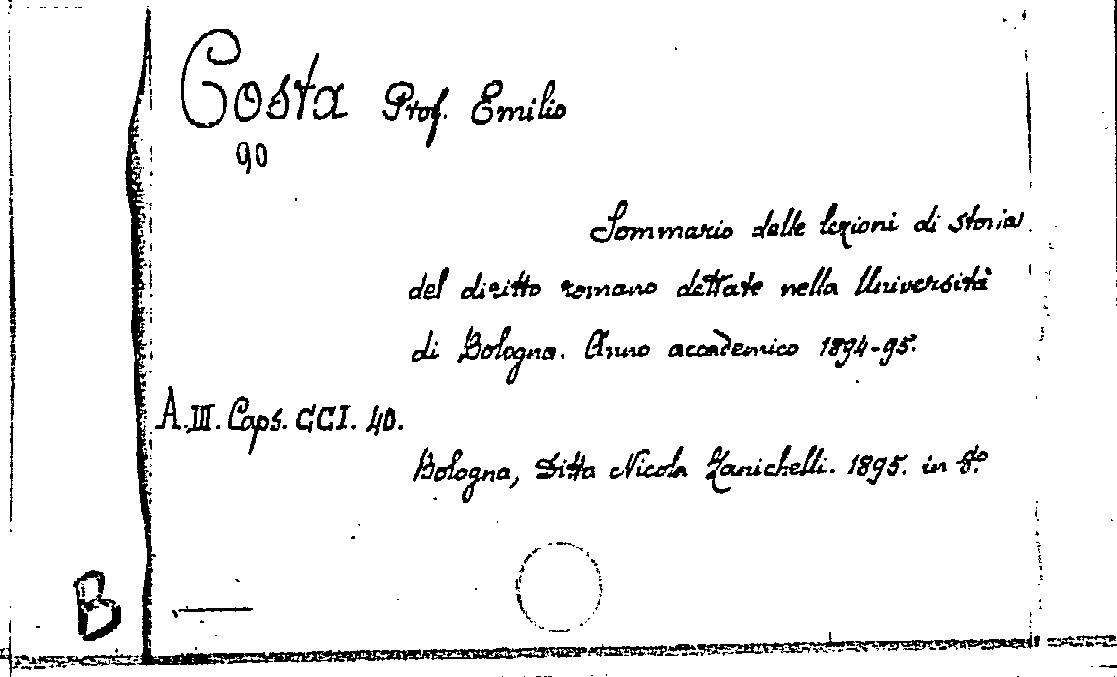 Costa Prof. Emilio
90
Sommario delle lezioni di storia
del diritto romano dettate nella Università
di Bologna. Anno accademico 1894-95.
A.III. Caps. CCI. 40.
Bologna, Ditta Nicola Zanichelli. 1895. in 8º
B